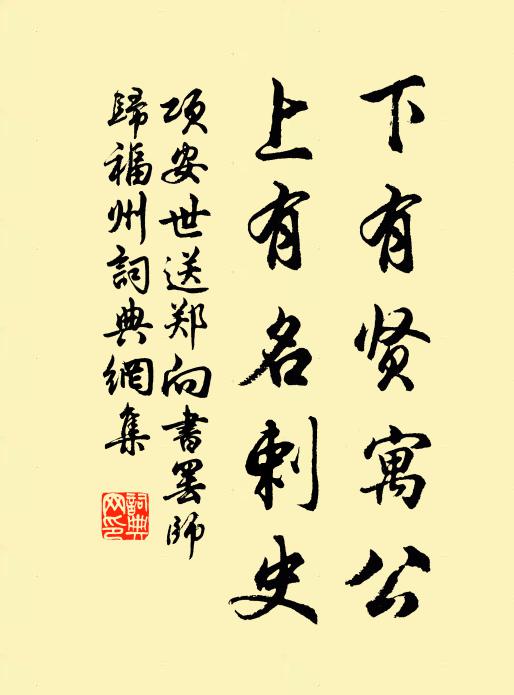 下有贤寓公
上有名刺史
项安世送郑向書罢师
歸福州詞典網集
詞典网印